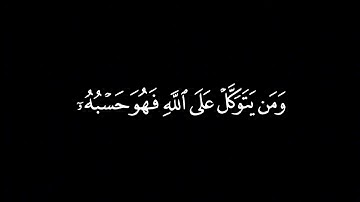 وَمَن يَتَوَكَّلۡ عَلَى ٱللَّهِ فَهُوَ حَسۡبُهُۥٓ